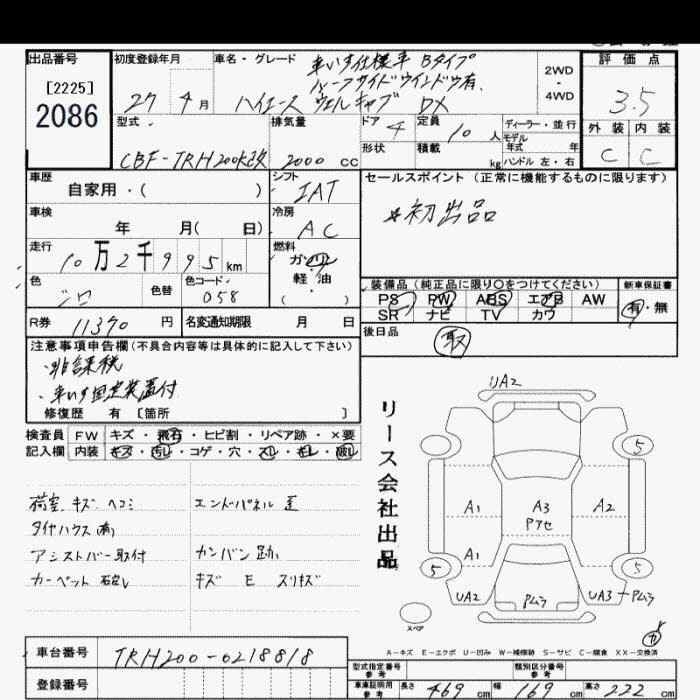 出品番号
[2225]
2086
初度登録年月
27年4月
車名・グレード
車いす仕様車 Bタイプ
ハイエース ウェルキャブ DX
2WD
4WD
評価点
3.5
外装 内装
C C
型式
CBF-TRH200K改
排気量
2000 cc
ドア 4
形状
定員 10 人
積載 kg
ディーラー・並行
モデル年式 年
ハンドル 左・右
車歴
自家用・( )
シフト
IAT
セールスポイント (正常に機能するものに限ります)
☆初出品
車検
年 月( 日)
冷房
AC
走行
10万2千995km
燃料
ガソリン
軽・油
( )
色
シロ
色替
色コード
058
装備品(純正品に限り○をつけてください)
PS PW ABS エアB AW
SR ナビ TV カワ
新車保証書
有・無
R券
11370 円
名変通知期限 月 日
後日品
取
注意事項申告欄(不具合内容等は具体的に記入して下さい)
・非課税
・車いす固定装置付
修復歴 有 [箇所 ]
検査員記入欄
FW キズ・飛石・ヒビ割・リペア跡・×要
内装 キズ・汚レ・コゲ・穴・スレ・キレ・破レ
荷室 キズ ヘコミ
エンドパネル
タイヤハウス
アシストバー取付
カンバン跡
カーペット
キズ E スリキズ
リース会社出品
UA2
5
A1 A3 A2
Pアセ
A1
5 5
UA2 Pムラ UA3 Pムラ
スペア
A-キズ E-エクボ U-凹み W-補修跡 S-サビ C-腐食 XX-交換済
車台番号
TRH200-0218818
登録番号
型式指定番号 参考
類別区分番号 参考
車庫証明用 参考
長さ 469 cm 幅 169 cm 高さ 222 cm